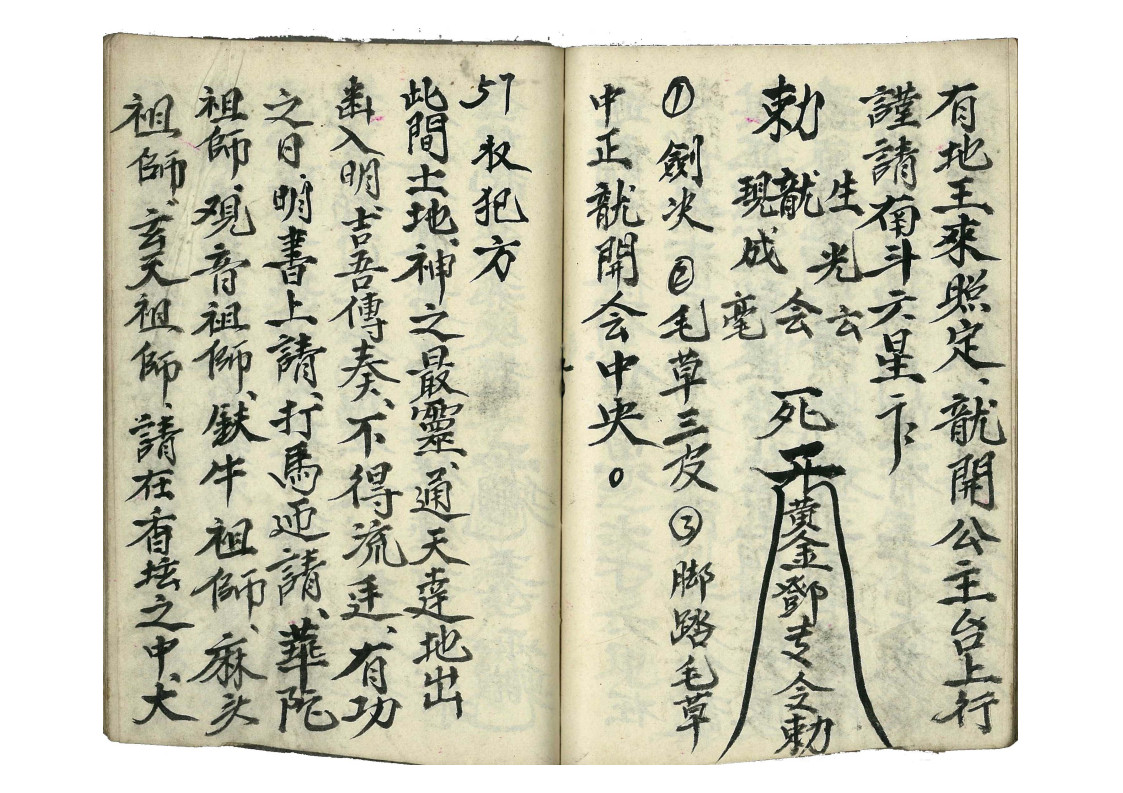 有地王來照定、龍開公主台上行
謹請南斗六星卞
生光云
龍会
現成毫
勅
死
黃金鄧支令勅
① 劍决 ② 毛草三皮 ③ 脚踏毛草
中正龍開会中央。
57 收犯方
此間土地、神之最靈、通天達地出
幽入明、吉吾傳奏、不得流连、有功
之日、明書上請、打馬迊請、華陀
祖師、观音祖師、鉄牛祖師、麻头
祖師、玄天祖師、請在香坛之中、大